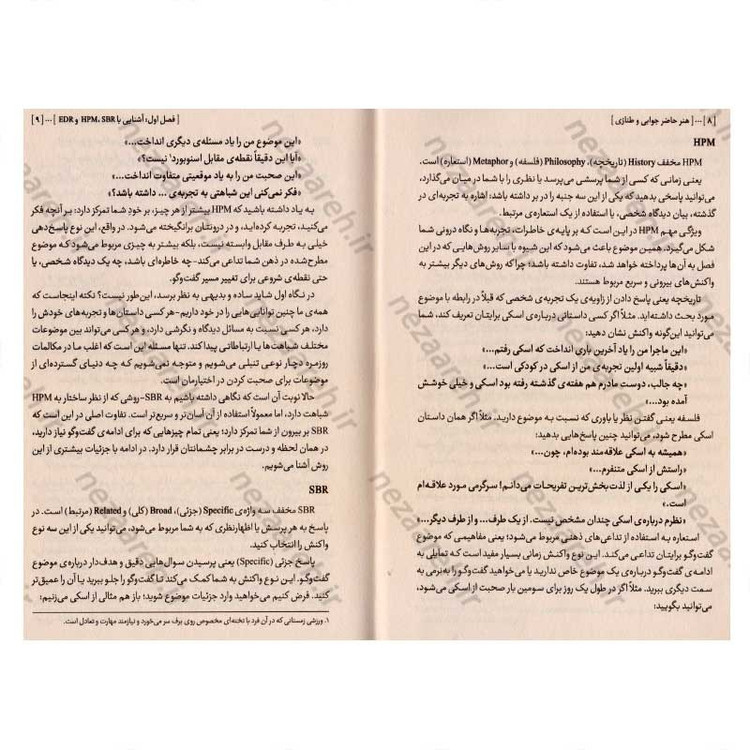 [ ۸ ] ... [ هنر حاضر جوابی و طنازی ]
HPM
HPM مخفف History (تاریخچه)، Philosophy (فلسفه) و Metaphor (استعاره) است،
یعنی زمانی که کسی از شما پرسشی می‌پرسد یا نظری را با شما در میان می‌گذارد،
می‌توانید پاسخی بدهید که یکی از این سه جنبه را در بر داشته باشد: اشاره به تجربه‌ای در
گذشته، بیان دیدگاه شخصی، یا استفاده از یک استعاره‌ی مرتبط.
ویژگی مهم HPM در این است که بر پایه‌ی خاطرات، تجربه‌ها و نگاه درونی شما
شکل می‌گیرد. همین موضوع باعث می‌شود که این شیوه با سایر روش‌هایی که در این
فصل به آن‌ها پرداخته خواهد شد، تفاوت داشته باشد؛ چراکه روش‌های دیگر بیشتر به
واکنش‌های بیرونی و سریع مربوط هستند.
تاریخچه یعنی پاسخ دادن از زاویه‌ی یک تجربه‌ی شخصی که قبلاً در رابطه با موضوع
مورد بحث داشته‌اید. مثلاً اگر کسی داستانی درباره‌ی اسکی برایتان تعریف کند، شما
می‌توانید این‌گونه واکنش نشان دهید:
«این ماجرا من را یاد آخرین باری انداخت که اسکی رفتم...»
«دقیقاً شبیه اولین تجربه‌ی من از اسکی در کودکی است...»
«چه جالب، دوستِ مادرم هم هفته‌ی گذشته رفته بود اسکی و خیلی خوشش
آمده بود...»
فلسفه یعنی گفتن نظر یا باوری که نسبت به موضوع دارید. مثلاً اگر همان داستان
اسکی مطرح شود، می‌توانید چنین پاسخ‌هایی بدهید:
«همیشه به اسکی علاقه‌مند بوده‌ام، چون...»
«راستش از اسکی متنفرم...»
«اسکی را یکی از لذت‌بخش‌ترین تفریحات می‌دانم! سرگرمی مورد علاقه‌ام
است.»
«نظرم درباره‌ی اسکی چندان مشخص نیست. از یک طرف... و از طرف دیگر...»
استعاره به استفاده از تداعی‌های ذهنی مربوط می‌شود؛ یعنی مفاهیمی که موضوع
گفت‌وگو برایتان تداعی می‌کند. این نوع واکنش زمانی بسیار مفید است که تمایلی به
ادامه‌ی گفت‌وگو درباره‌ی یک موضوع خاص ندارید یا می‌خواهید گفت‌وگو را به‌نرمی به
سمت دیگری ببرید. مثلاً اگر در طول یک روز برای سومین بار صحبت از اسکی می‌شود،
می‌توانید بگویید:
[ فصل اول: آشنایی با HPM، SBR و EDR ] ... [ ۹ ]
«این موضوع من را یاد مسئله‌ی دیگری انداخت...»
«آیا این دقیقاً نقطه‌ی مقابل اسنوبورد۱ نیست؟»
«این صحبت من را به یاد موقعیتی متفاوت انداخت...»
«فکر نمی‌کنی این شباهتی به تجربه‌ی ... داشته باشد؟»
به یاد داشته باشید که HPM بیشتر از هر چیز، بر خودِ شما تمرکز دارد؛ بر آنچه فکر
می‌کنید، تجربه کرده‌اید، و در درونتان برانگیخته می‌شود. در واقع، این نوع پاسخ‌دهی
خیلی به طرف مقابل وابسته نیست، بلکه بیشتر به چیزی مربوط می‌شود که موضوع
مطرح‌شده در ذهن شما تداعی می‌کند-چه خاطره‌ای باشد، چه یک دیدگاه شخصی، یا
حتی نقطه‌ی شروعی برای تغییر مسیر گفت‌وگو.
در نگاه اول شاید ساده و بدیهی به نظر برسد، این‌طور نیست؟ نکته اینجاست که
همه‌ی ما چنین توانایی‌هایی را در خود داریم-هر کسی داستان‌ها و تجربه‌های خودش را
دارد، هر کسی نسبت به مسائل دیدگاه و نگرشی دارد، و هر کسی می‌تواند بین موضوعات
مختلف شباهت‌ها یا ارتباطاتی پیدا کند. تنها مسئله این است که اغلب ما در مکالمات
روزمره دچار نوعی تنبلی می‌شویم و متوجه نمی‌شویم که چه دنیای گسترده‌ای از
موضوعات برای صحبت کردن در اختیارمان است.
حالا نوبت آن است که نگاهی داشته باشیم به SBR-روشی که از نظر ساختار به HPM
شباهت دارد، اما معمولاً استفاده از آن آسان‌تر و سریع‌تر است. تفاوت اصلی در این است که
SBR بر بیرون از شما تمرکز دارد؛ یعنی تمام چیزهایی که برای ادامه‌ی گفت‌وگو نیاز دارید،
در همان لحظه و درست در برابر چشمانتان قرار دارد. در ادامه با جزئیات بیشتری از این
روش آشنا می‌شویم.
SBR
SBR مخفف سه واژه‌ی Specific (جزئی)، Broad (کلی) و Related (مرتبط) است. در
پاسخ به هر پرسش یا اظهارنظری که به شما مربوط می‌شود، می‌توانید یکی از این سه نوع
واکنش را انتخاب کنید.
پاسخ جزئی (Specific) یعنی پرسیدن سوال‌هایی دقیق و هدف‌دار درباره‌ی موضوع
گفت‌وگو. این نوع واکنش به شما کمک می‌کند تا گفت‌وگو را جلو ببرید یا آن را عمیق‌تر
کنید. فرض کنیم می‌خواهید وارد جزئیات موضوع شوید؛ باز هم مثالی از اسکی می‌زنیم:
۱. ورزشی زمستانی که در آن فرد با تخته‌ای مخصوص روی برف سر می‌خورد و نیازمند مهارت و تعادل است.
nezaareh.ir